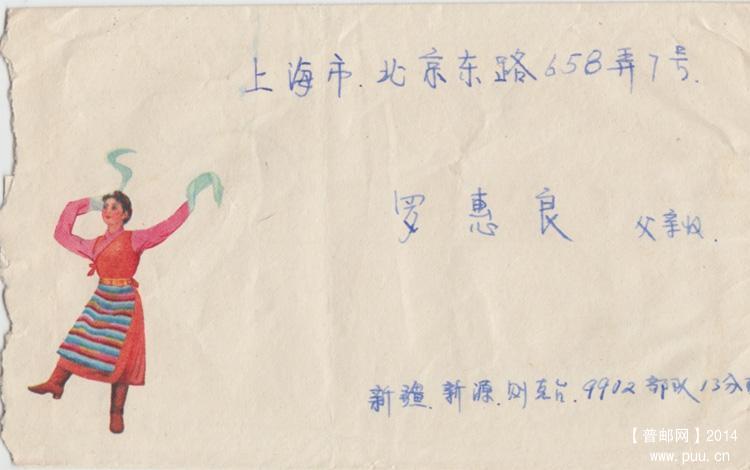 上海市.北京东路658弄7号.
罗惠良 父亲收.
新疆.新源.则克台.9902部队13分
【普邮网】2014
www.puu.cn